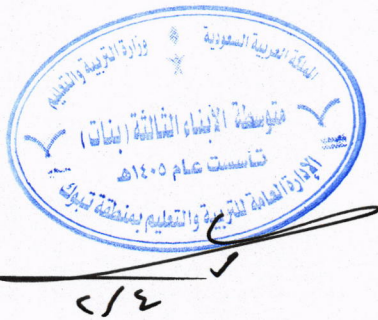 المملكة العربية السعودية
وزارة التربية والتعليم
متوسطة الأبناء الثالثة (بنات)
تأسست عام ١٤٠٥هـ
الإدارة العامة للتربية والتعليم بمنطقة تبوك
٢/٤